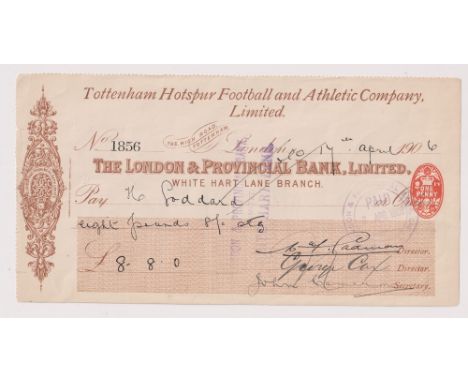 Tottenham Hotspur Football and Athletic Company,
Limited.
No 1856
THE HIGH ROAD,
TOTTENHAM.
London 17th April 1906
THE LONDON & PROVINCIAL BANK, LIMITED.
WHITE HART LANE BRANCH.
Pay H Goddard
PAID
ONE
PENNY
eight pounds 8/-
£ 8.8.0
Director.
George Cox Director.
John Secretary.